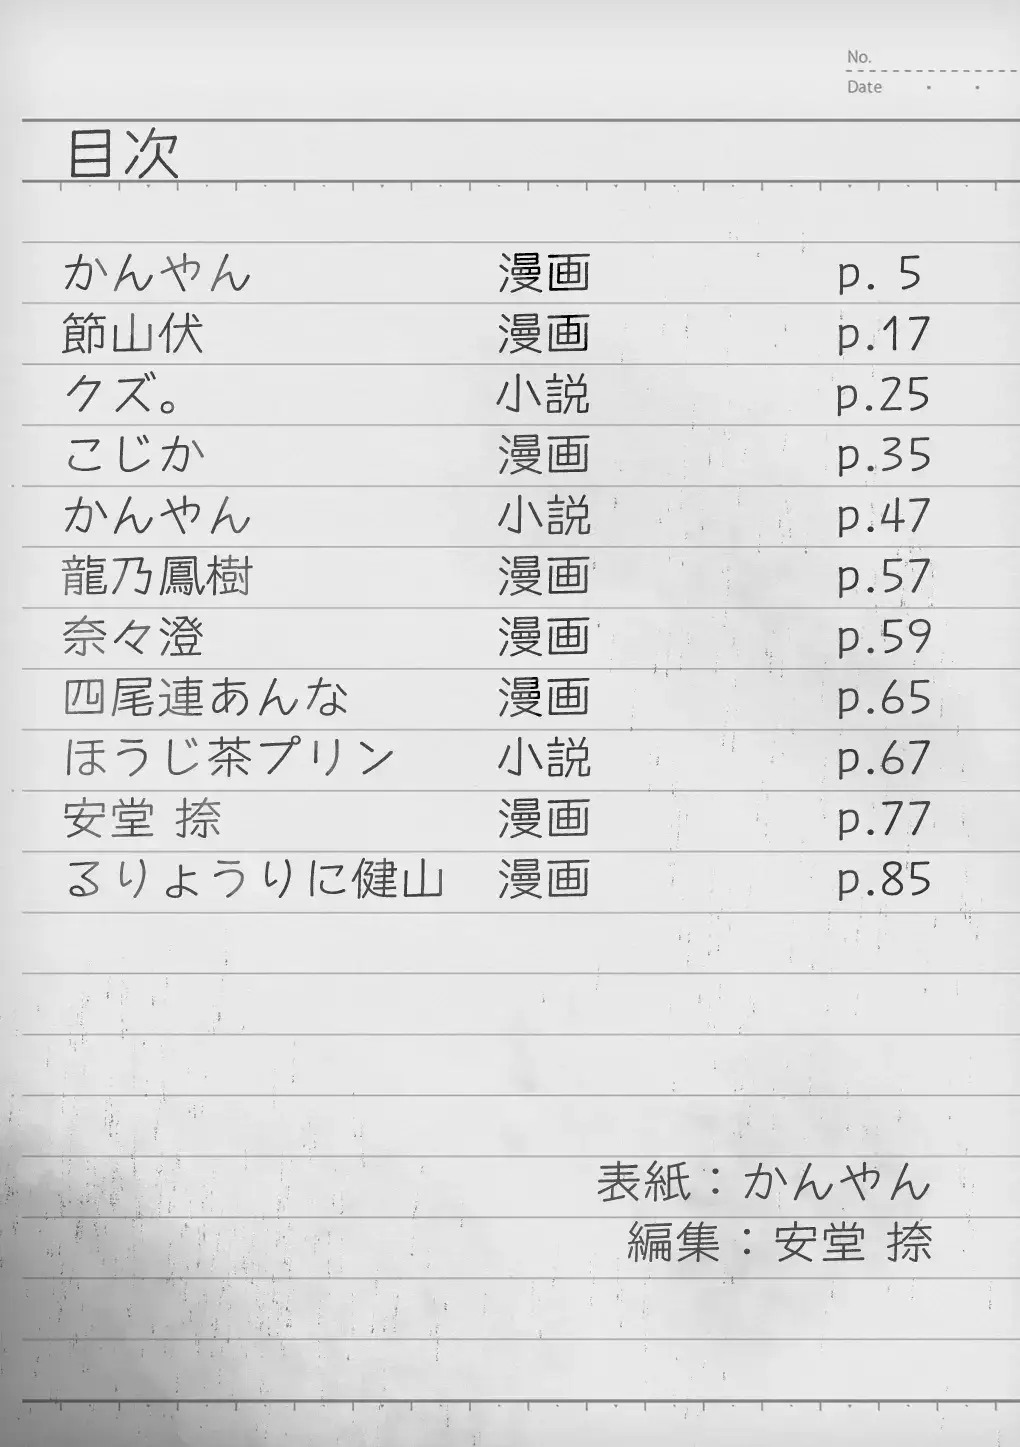 No.
Date
目次
かんやん 漫画 p. 5
節山伏 漫画 p.17
クズ。 小説 p.25
こじか 漫画 p.35
かんやん 小説 p.47
龍乃鳳樹 漫画 p.57
奈々澄 漫画 p.59
四尾連あんな 漫画 p.65
ほうじ茶プリン 小説 p.67
安堂 捺 漫画 p.77
るりょうりに健山 漫画 p.85
表紙：かんやん
編集：安堂 捺